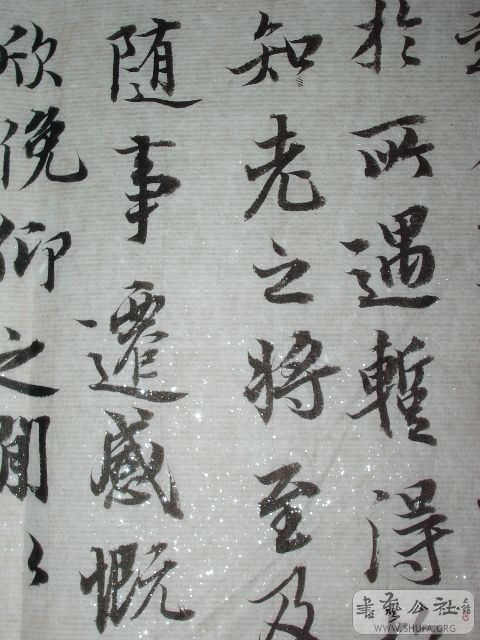 於所遇暫得
知老之将至及
随事遷感慨
欣俛仰之間〻
書藝公社
WWW.SHUFA.ORG